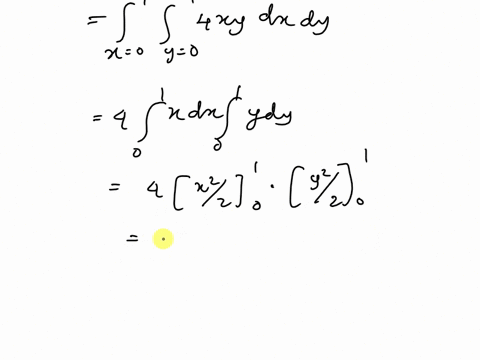 = ∫_{x=0}^{1} ∫_{y=0}^{1} 4xy dx dy
= 4 ∫_0^1 x dx ∫_0^1 y dy
= 4 [x²/2]_0^1 · [y²/2]_0^1
=